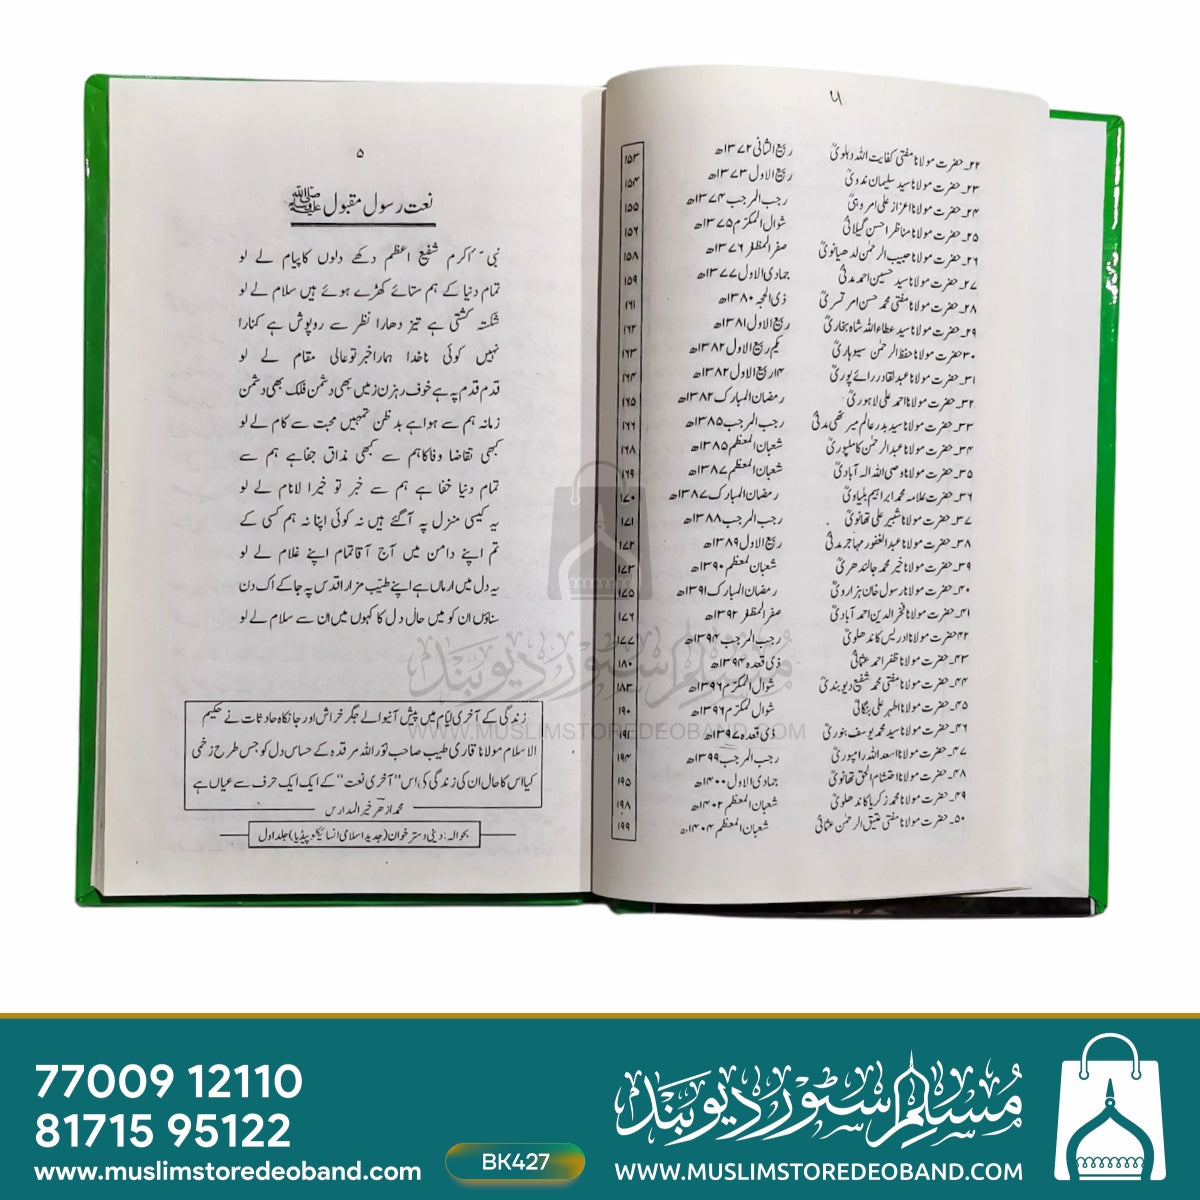 ۴
۲۲۔ حضرت مولانا مفتی کفایت اللہ دہلویؒ ربیع الثانی ۱۳۷۲ھ ۱۵۳
۲۳۔ حضرت مولانا سید سلیمان ندویؒ ربیع الاول ۱۳۷۳ھ ۱۵۴
۲۴۔ حضرت مولانا اعزاز علی امروہیؒ رجب المرجب ۱۳۷۴ھ ۱۵۵
۲۵۔ حضرت مولانا مناظر احسن گیلانیؒ شوال المکرّم ۱۳۷۵ھ ۱۵۶
۲۶۔ حضرت مولانا حبیب الرحمٰن لدھیانویؒ صفر المظفر ۱۳۷۶ھ ۱۵۸
۲۷۔ حضرت مولانا سید حسین احمد مدنیؒ جمادی الاول ۱۳۷۷ھ ۱۵۹
۲۸۔ حضرت مولانا مفتی محمد حسن امرتسریؒ ذی الحجہ ۱۳۸۰ھ ۱۶۱
۲۹۔ حضرت مولانا سید عطاء اللہ شاہ بخاریؒ ربیع الاول ۱۳۸۱ھ ۱۶۲
۳۰۔ حضرت مولانا حفظ الرحمٰن سیوہارویؒ یکم ربیع الاول ۱۳۸۲ھ ۱۶۳
۳۱۔ حضرت مولانا عبدالقادر رائے پوریؒ ۱۴ ربیع الاول ۱۳۸۲ھ ۱۶۴
۳۲۔ حضرت مولانا احمد علی لاہوریؒ رمضان المبارک ۱۳۸۲ھ ۱۶۵
۳۳۔ حضرت مولانا سید بدر عالم میرٹھی مدنیؒ رجب المرجب ۱۳۸۵ھ ۱۶۶
۳۴۔ حضرت مولانا عبدالرحمٰن کاملپوریؒ شعبان المعظم ۱۳۸۵ھ ۱۶۸
۳۵۔ حضرت مولانا وصی اللہ الہ آبادیؒ شعبان المعظم ۱۳۸۷ھ ۱۶۹
۳۶۔ حضرت علامہ محمد ابراہیم بلیاویؒ رمضان المبارک ۱۳۸۷ھ ۱۷۰
۳۷۔ حضرت مولانا شبیر علی تھانویؒ رجب المرجب ۱۳۸۸ھ ۱۷۱
۳۸۔ حضرت مولانا عبدالغفور مہاجر مدنیؒ ربیع الاول ۱۳۸۹ھ ۱۷۲
۳۹۔ حضرت مولانا خیر محمد جالندھریؒ شعبان المعظم ۱۳۹۰ھ ۱۷۳
۴۰۔ حضرت مولانا رسول خان ہزارویؒ رمضان المبارک ۱۳۹۱ھ ۱۷۵
۴۱۔ حضرت مولانا فخرالدین احمد آبادیؒ صفر المظفر ۱۳۹۲ھ ۱۷۶
۴۲۔ حضرت مولانا ادریس کاندھلویؒ رجب المرجب ۱۳۹۴ھ ۱۷۷
۴۳۔ حضرت مولانا ظفر احمد عثمانیؒ ذی قعدہ ۱۳۹۴ھ ۱۸۰
۴۴۔ حضرت مولانا مفتی محمد شفیع دیوبندیؒ شوال المکرّم ۱۳۹۶ھ ۱۸۳
۴۵۔ حضرت مولانا اطہر علی بنگالیؒ شوال لمکرّم ۱۳۹۶ھ ۱۹۰
۴۶۔ حضرت مولانا سید محمد یوسف بنوریؒ ذی قعدہ ۱۳۹۷ھ ۱۹۱
۴۷۔ حضرت مولانا اسعد اللہ رامپوریؒ رجب المرجب ۱۳۹۹ھ ۱۹۴
۴۸۔ حضرت مولانا احتشام الحق تھانویؒ جمادی الاول ۱۴۰۰ھ ۱۹۵
۴۹۔ حضرت مولانا محمد زکریا کاندھلویؒ شعبان المعظم ۱۴۰۲ھ ۱۹۸
۵۰۔ حضرت مولانا مفتی عتیق الرحمٰن عثمانیؒ شعبان المعظم ۱۴۰۴ھ ۱۹۹
۵
نعت رسول مقبول ﷺ
نبیؐ اکرم شفیع اعظم دکھے دلوں کا پیام لے لو
تمام دنیا کے ہم ستائے کھڑے ہوئے ہیں سلام لے لو
شکستہ کشتی ہے تیز دھارا نظر سے روپوش ہے کنارا
نہیں کوئی ناخدا ہمارا خبر تو عالی مقام لے لو
قدم قدم پہ ہے خوف رہزن زمیں بھی دشمن فلک بھی دشمن
زمانہ ہم سے ہوا ہے بدظن تمہیں محبت سے کام لے لو
کبھی تقاضا وفا کا ہم سے کبھی مذاق جفا ہے ہم سے
تمام دنیا خفا ہے ہم سے خبر تو خیرا لانام لے لو
یہ کیسی منزل پہ آگئے ہیں نہ کوئی اپنا نہ ہم کسی کے
تم اپنے دامن میں آج آقا تمام اپنے غلام لے لو
یہ دل میں ارماں ہے اپنے طیب مزار اقدس پہ جا کے اک دن
سناؤں ان کو میں حال دل کا کہوں میں ان سے سلام لے لو
زندگی کے آخری ایّام میں پیش آنیوالے جگر خراش اور جانکاہ حادثات نے حکیم
الاسلام مولانا قاری طیب صاحب نوّر اللہ مرقدہ کے حساس دل کو جس طرح زخمی
کیا اس کا حال ان کی زندگی کی اس "آخری نعت" کے ایک ایک حرف سے عیاں ہے
محمد ازھر خیر المدارس
بحوالہ: دینی دسترخوان (جدید اسلامی انسائیکلوپیڈیا) جلد اول
مسلم سٹور دیوبند
WWW.MUSLIMSTOREDEOBAND.COM
77009 12110
81715 95122
www.muslimstoredeoband.com
BK427
مسلم سٹور دیوبند
WWW.MUSLIMSTOREDEOBAND.COM